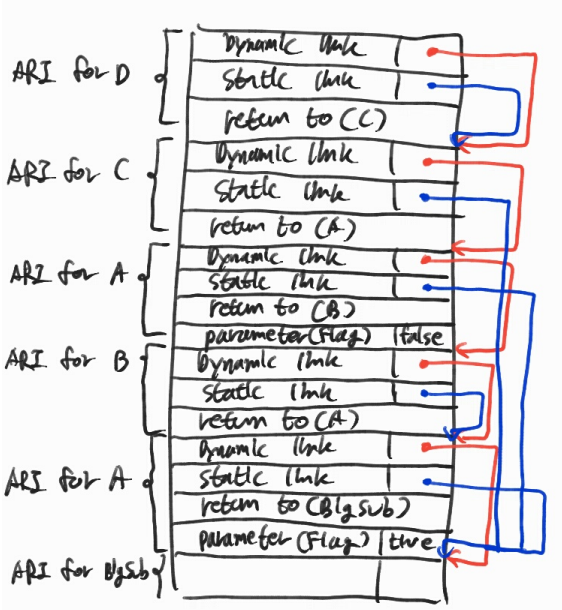 ARI for D
Dynamic link
static link
return to (C)
ARI for C
Dynamic link
static link
return to (A)
ARI for A
Dynamic link
static link
return to (B)
parameter(flag) false
ARI for B
Dynamic link
static link
return to (A)
ARI for A
Dynamic link
static link
return to (BigSub)
parameter (Flag) true
ARI for BigSub